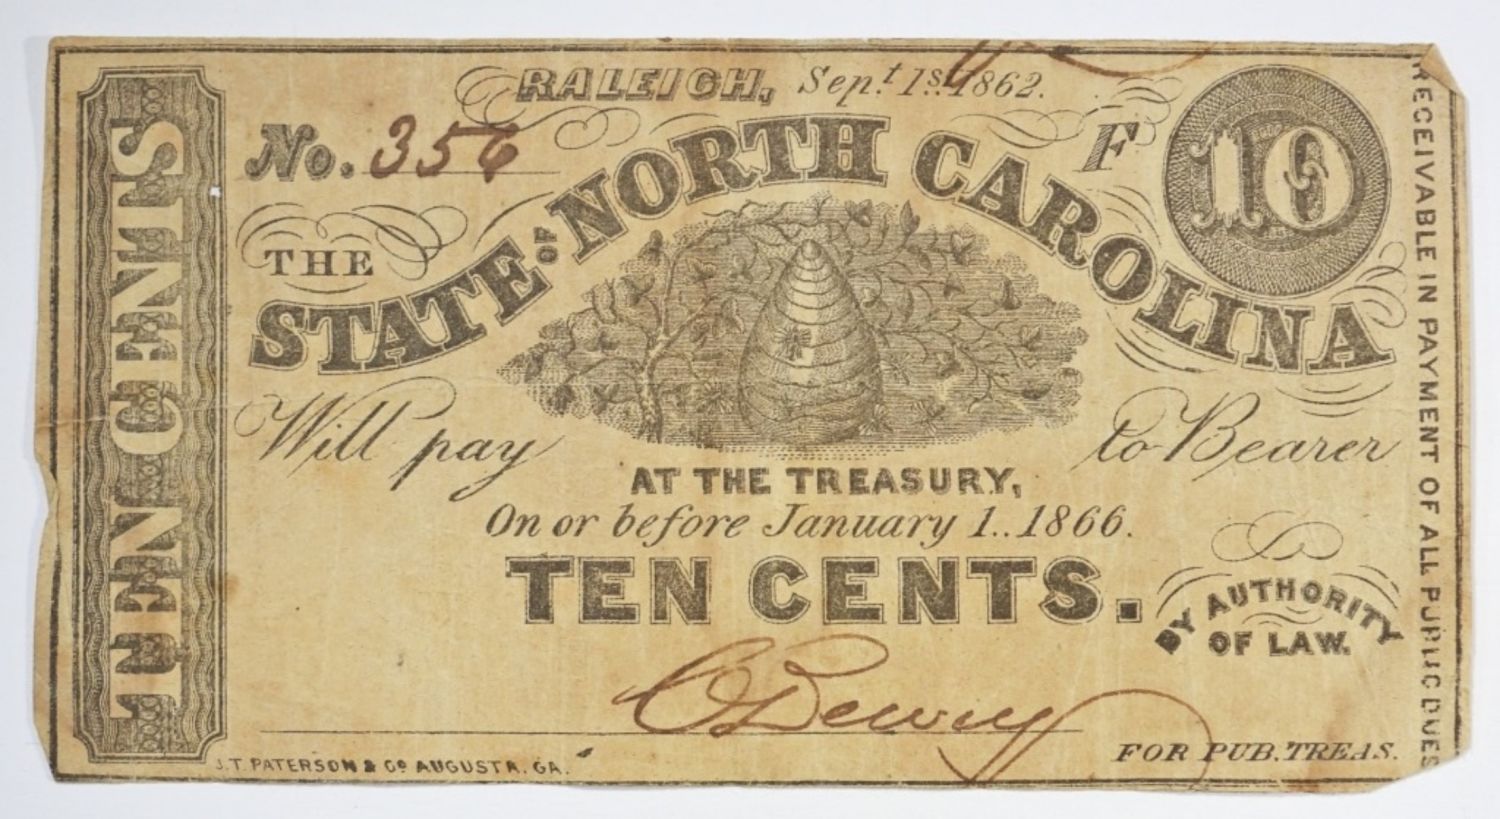 RALEIGH, Sep.t 1st. 1862.
No. 356
F
10
THE
STATE OF NORTH CAROLINA
Will pay to Bearer
AT THE TREASURY,
On or before January 1.. 1866.
TEN CENTS.
BY AUTHORITY
OF LAW.
C Dewey
FOR PUB. TREAS.
J.T. PATERSON & Co AUGUSTA. GA.
TEN CENTS
RECEIVABLE IN PAYMENT OF ALL PUBLIC DUES